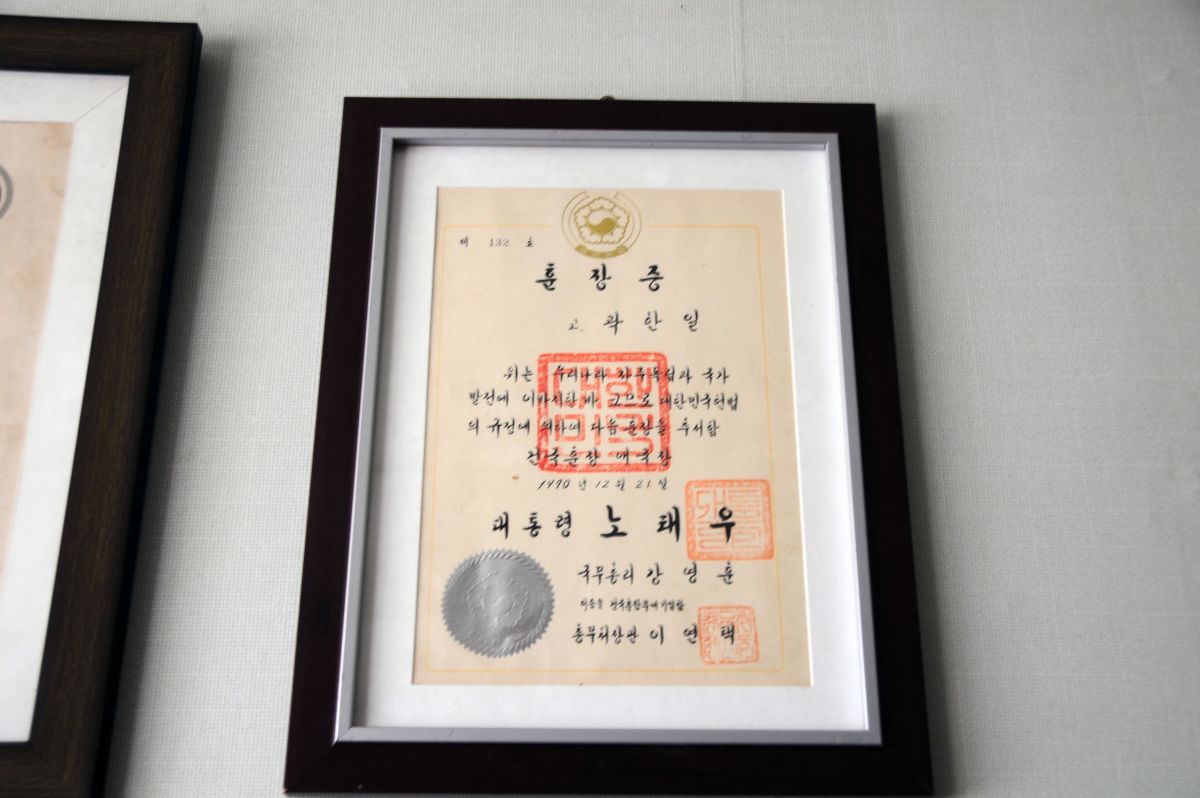 제 132 호
훈장증
고 곽한일
위는 우리나라 자주독립과 국가
발전에 이바지한 바 크므로 대한민국헌법
의 규정에 의하여 다음 훈장을 추서함
건국훈장 애국장
1990년 12월 21일
대통령 노태우
국무총리 강영훈
이 증을 건국훈장부에 기입함
총무처장관 이연택